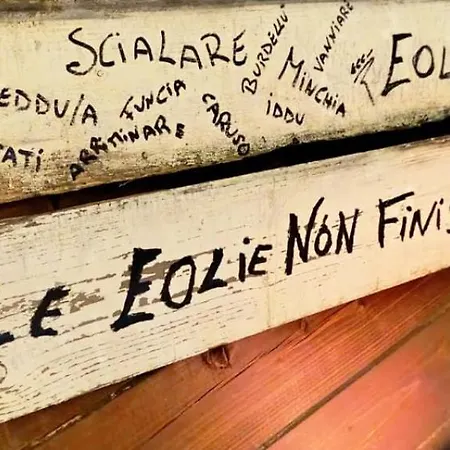 SCIALARE
BURDELLU
VANNIARE
EOL
EDDU/A
FUNCIA
CARUSO
MINCHIA
IDDU
TATI
ARRIMINARE
LE EOLIE NON FINIS